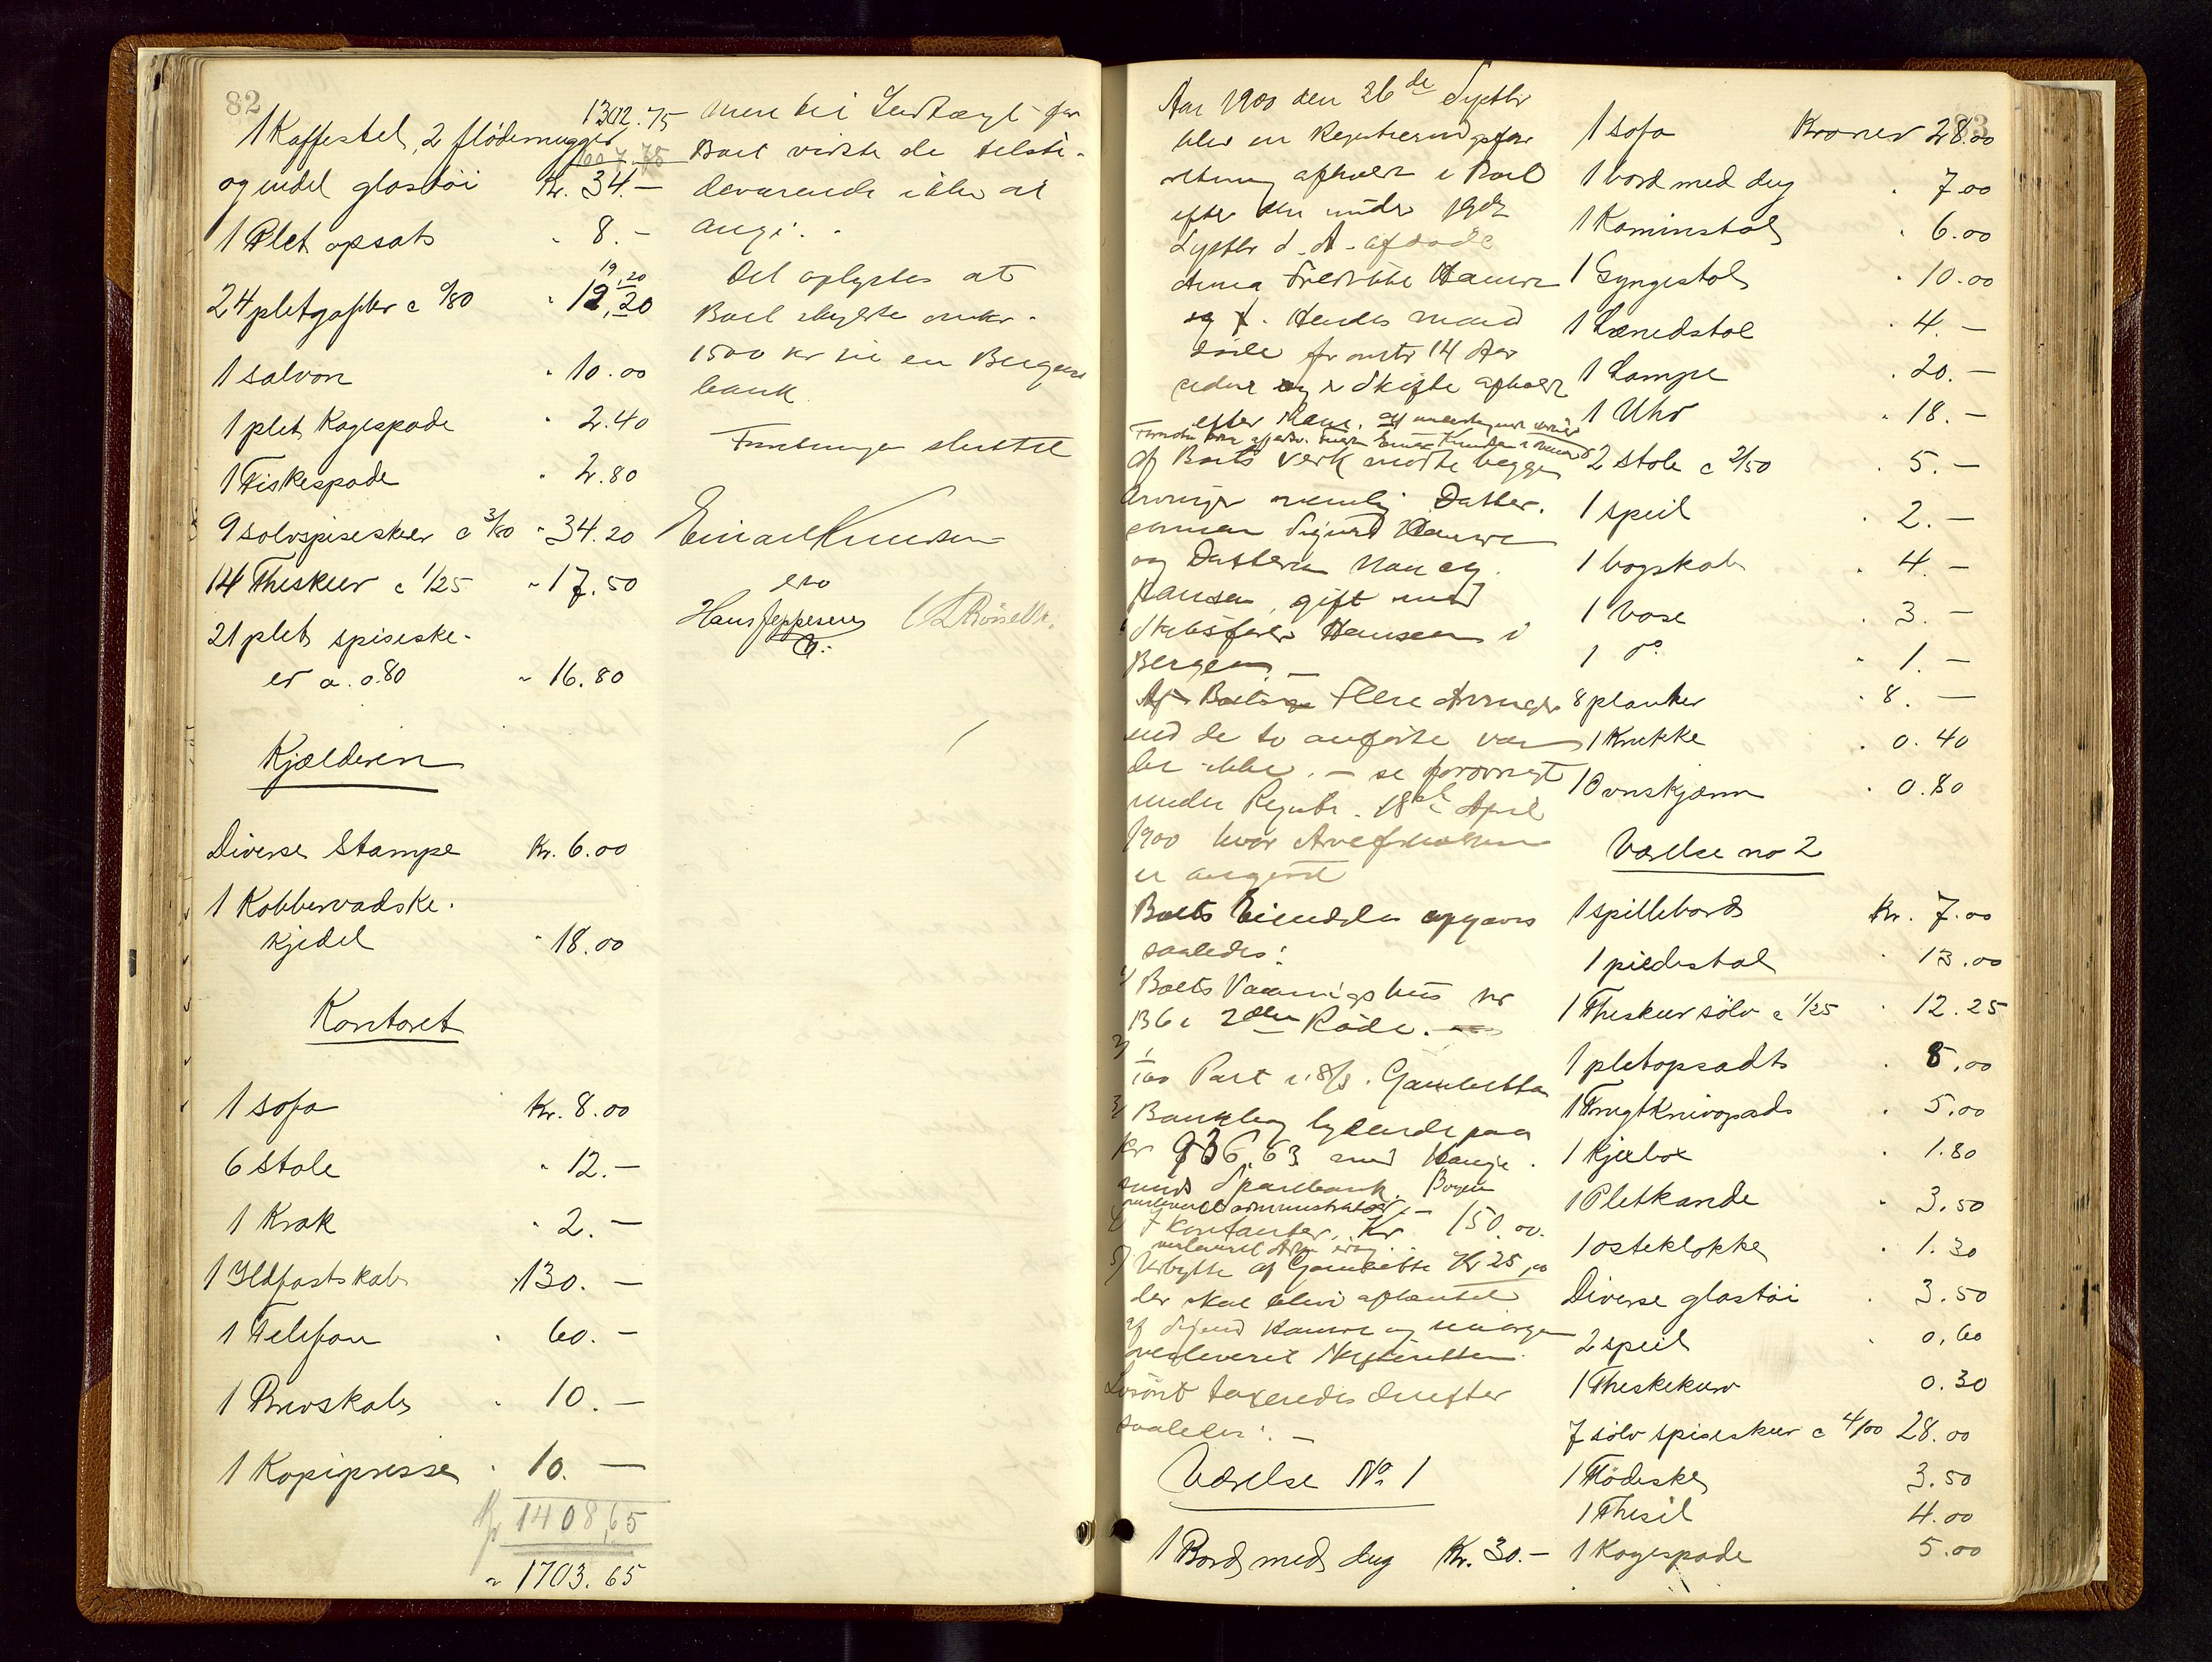 82
1302.75
1 Kaffestel, 2 flødemugger
607.75
og endel glastøi Kr. 34.—
1 Plet opsats " 8.—
19.20
24 pletgafler a 0/80 " 19.20
1 salvon " 10.00
1 plet Kagespade " 2.40
1 Fiskespade " 2.80
9 sølvspiseskeer a 3/80 " 34.20
14 Theskeer a 1/25 " 17.50
21 plet spiseske-
er a. 0.80 " 16.80
Kjælderen
Diverse Stampe Kr. 6.00
1 Kobbervadske-
kjedel " 18.00
Kontoret
1 sofa Kr. 8.00
6 stole " 12.—
1 Krak " 2.—
1 Ildfastskab " 130.—
1 Telefon " 60.—
1 Brevskab " 10.—
1 Kopipresse " 10.—
Kr 1408,65
" 1703.65
men hei Indtægt for
Boet vidste de tilste-
deværende ikke at
angi.
Det oplystes at
Boet skyldte omkr.
1500 kr til en Bergens
bank
Forretningen sluttet
Einar Knudsen
Hans Jeppesen
Aar 1900 den 26de Septbr
blev en Registreringsfor
retning afholdt i Boet
efter den under 19de
Septbr d. A. afdøde
Anna Fredrikke Hauwe
Hendes mand
døde for omtr 14 Aar
siden og er Skifte afholdt
efter Mand.
af Boets verk mødte begge
Arvinger nemlig Datter-
sønnen Sigurd Hauwe
og Datteren Nancy
Hansen, gift med
Skibsfører Hansen i
Bergen.—
Flere Arvinger
end de to anførte var
der ikke.— se forøvrigt
under Registr. 18de April
1900 hvor Arveforholdet
er angivet
Boets Eiendele opgaves
saaledes:
1) Boets Vaaningshus nr
136 i 2den Rode.
2)
1/100 Part i S/S. Gambetta
3) Bankbog lydende paa
Kr 936.63 med Hauge-
sunds Sparebank. Bogen
overleveret administrator.—
4) I Kontanter, Kr 150.00.
5) Udbytte af Gambetta Kr 25,00
der skal blive afhentet
af Sigurd Hauwe og imorgen
overleveret Skifteretten.
Løsøret taxeredes derefter
saaledes:—
Værelse No 1
1 Bord med dug Kr. 30.—
83
1 sofa Kroner 28.00
1 bord med dug " 7.00
1 Kaminstol " 6.00
1 Gyngestol " 10.00
1 Lænestol " 4.—
1 Lampe " 20.—
1 Uhr " 18.—
2 stole a 2/50 " 5.—
1 speil " 2.—
1 bogskab " 4.—
1 Vase " 3.—
1 do " 1.—
8 planter " 8.—
1 Krukke " 0.40
1 Ovnskjærm " 0.80
Værelse no 2
1 spillebord Kr. 7.00
1 piedestal " 13.00
1 Theskeer sølv a 1/25 " 12.25
1 pletopsadts " 8.00
1 Frugtknivopsads " 5.00
1 Kjexbox " 1.80
1 Pletkande " 3.50
1 osteklokke " 1.30
Diverse glastøi " 3.50
2 speil " 0,60
1 Theskekurv 0.30
7 sølv spiseskeer a 4/00 28.00
1 Flødeske 3.50
1 Thesil 4.00
1 Kagespade 5.00